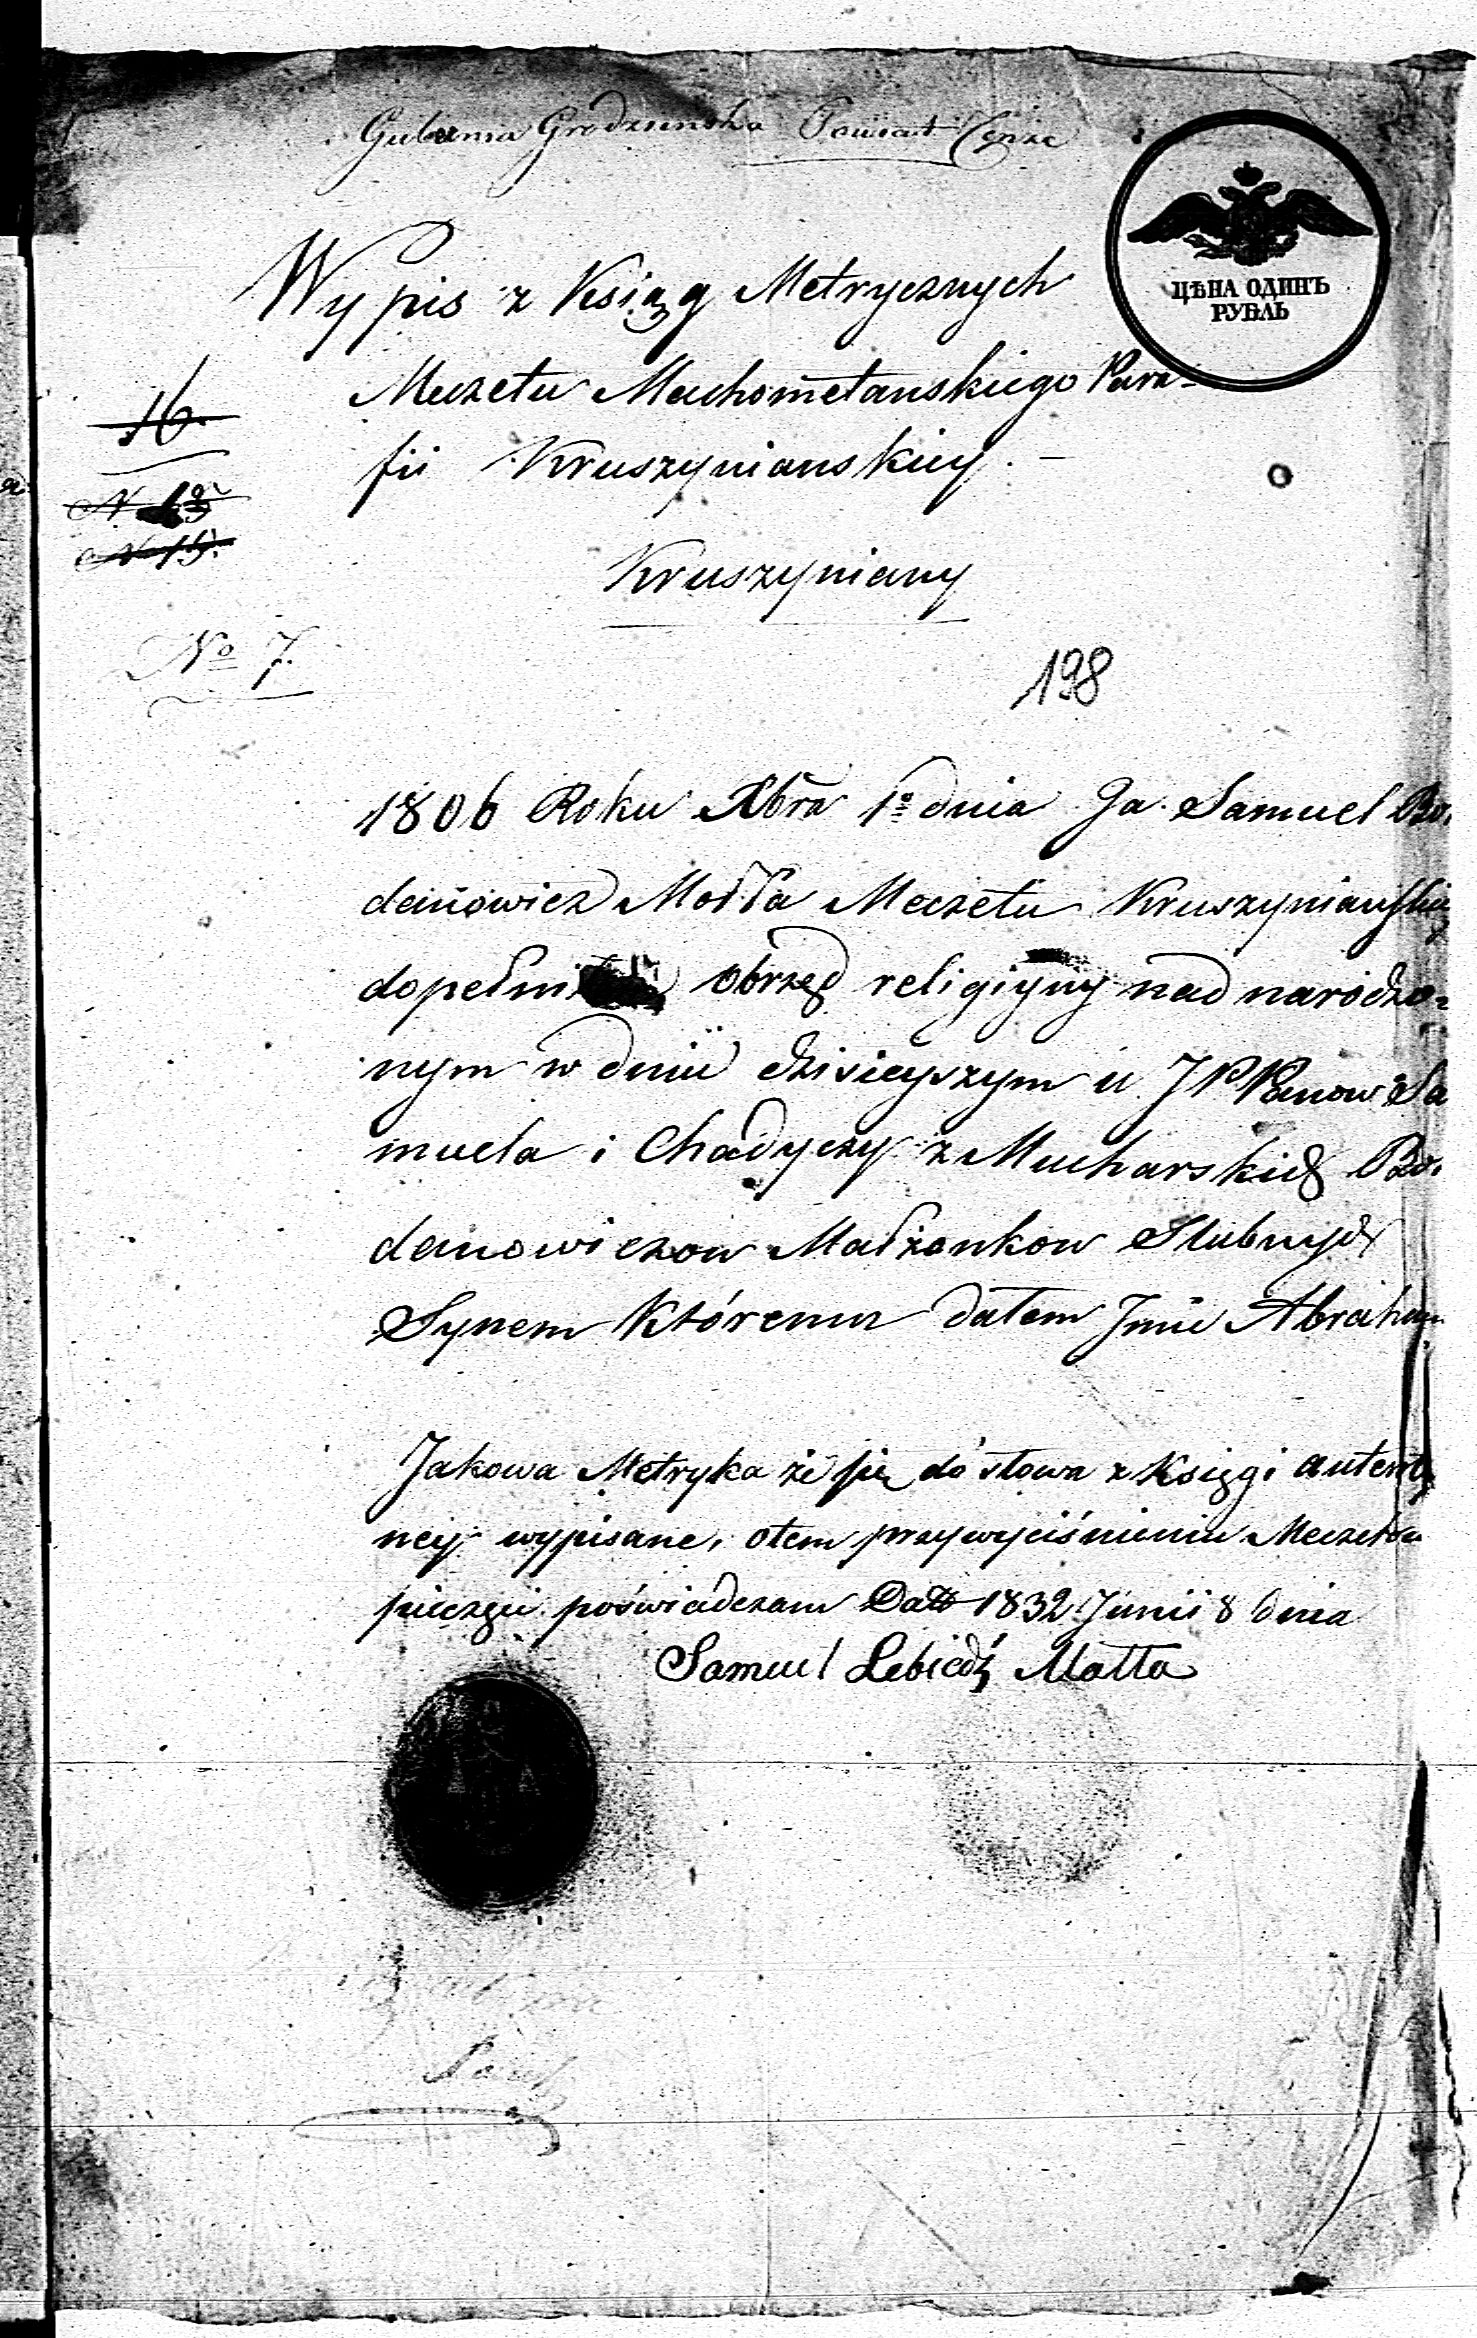 Gubernia Grodzienska Powiat
ЦѢНА ОДИНЪ
РУБЛЬ
Wypis z Ksiąg Metrycznych
Meczetu Machometanskiego Para-
fii Kruszynianskiey. -
16.
N 13
N 15.
Kruszyniany
No 7.
198
1806 Roku Xbra 1o dnia Ja Samuel Bo,
danowicz Mołła Meczetu Kruszynianskiey
dopełni obrzęd religiyny nad narodzo=
nym w dniu dzisieyszym u JPPanow Sa
muela i Chadyczy z Mucharskich Bo,
danowiczow Małżonkow Slubnych
Synem Któremu dałem Jmie Abraham
Jakowa Metryka że się do słowa z Księgi autenty
ney wypisane, otem przy wyciśnieniu Meczetow
pieczęci poświadczam Datt 1832 Junii 8 dnia
Samuel Lebiedź Mołła